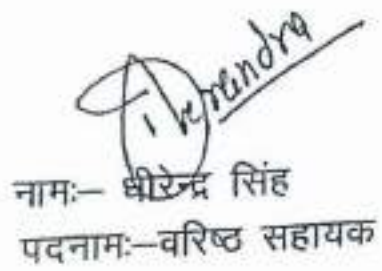 Dherendra
नामः– धीरेन्द्र सिंह
पदनामः–वरिष्ठ सहायक